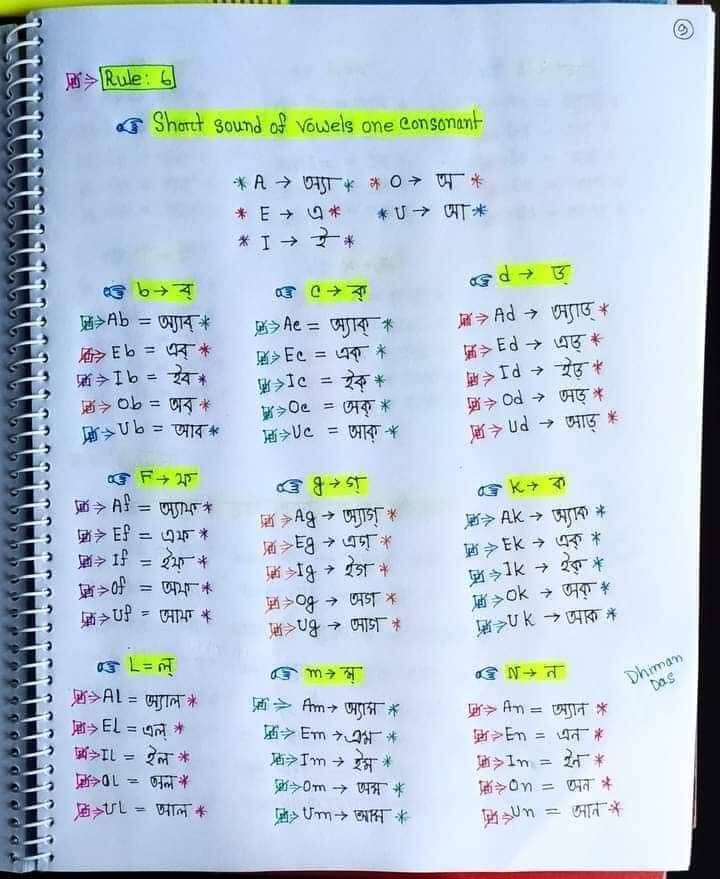 9
Rule: 6
Short sound of vowels one consonant
* A → অ্যা * * O → অ *
* E → এ * * U → আ *
* I → ই *
b → ব্
Ab = অ্যাব্ *
Eb = এব্ *
Ib = ইব্ *
Ob = অব্ *
Ub = আব্ *
C → ক্
Ac = অ্যাক্ *
Ec = এক্ *
Ic = ইক্ *
Oc = অক্ *
Uc = আক্ *
d → ড্
Ad → অ্যাড্ *
Ed → এড্ *
Id → ইড্ *
Od → অড্ *
Ud → আড্ *
F → ফ্
Af = অ্যাফ্ *
Ef = এফ্ *
If = ইফ্ *
Of = অফ্ *
Uf = আফ্ *
g → গ্
Ag → অ্যাগ্ *
Eg → এগ্ *
Ig → ইগ্ *
Og → অগ্ *
Ug → আগ্ *
K → ক্
AK → অ্যাক্ *
EK → এক্ *
IK → ইক্ *
OK → অক্ *
UK → আক্ *
L = ল্
AL = অ্যাল্ *
EL = এল্ *
IL = ইল্ *
OL = অল্ *
UL = আল্ *
m → ম্
Am → অ্যাম্ *
Em → এম্ *
Im → ইম্ *
Om → অম্ *
Um → আম্ *
N → ন্
An = অ্যান্ *
En = এন্ *
In = ইন্ *
On = অন্ *
Un = আন্ *
Dhiman
Das